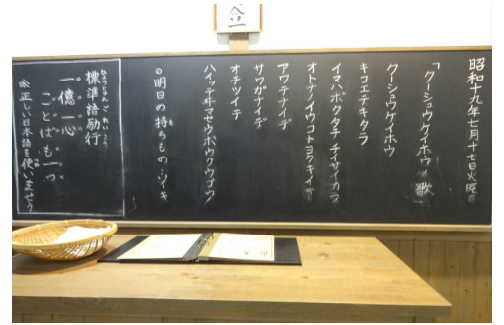 昭和十九年七月十七日火曜
「クーシュウケイホウ」歌
クーシュウケイホウ
キコエテキタラ
イマハボクタチ チイサイカラ
オトナノイウコトヨクキイテ
アワテナイデ
サワガナイデ
オチツイテ
ハイッテヰマセウボウクウゴウ
◎明日の持ちもの・ゾーキ
標準語励行
一億一心
ことばも一つ
※正しい日本語を使いませう